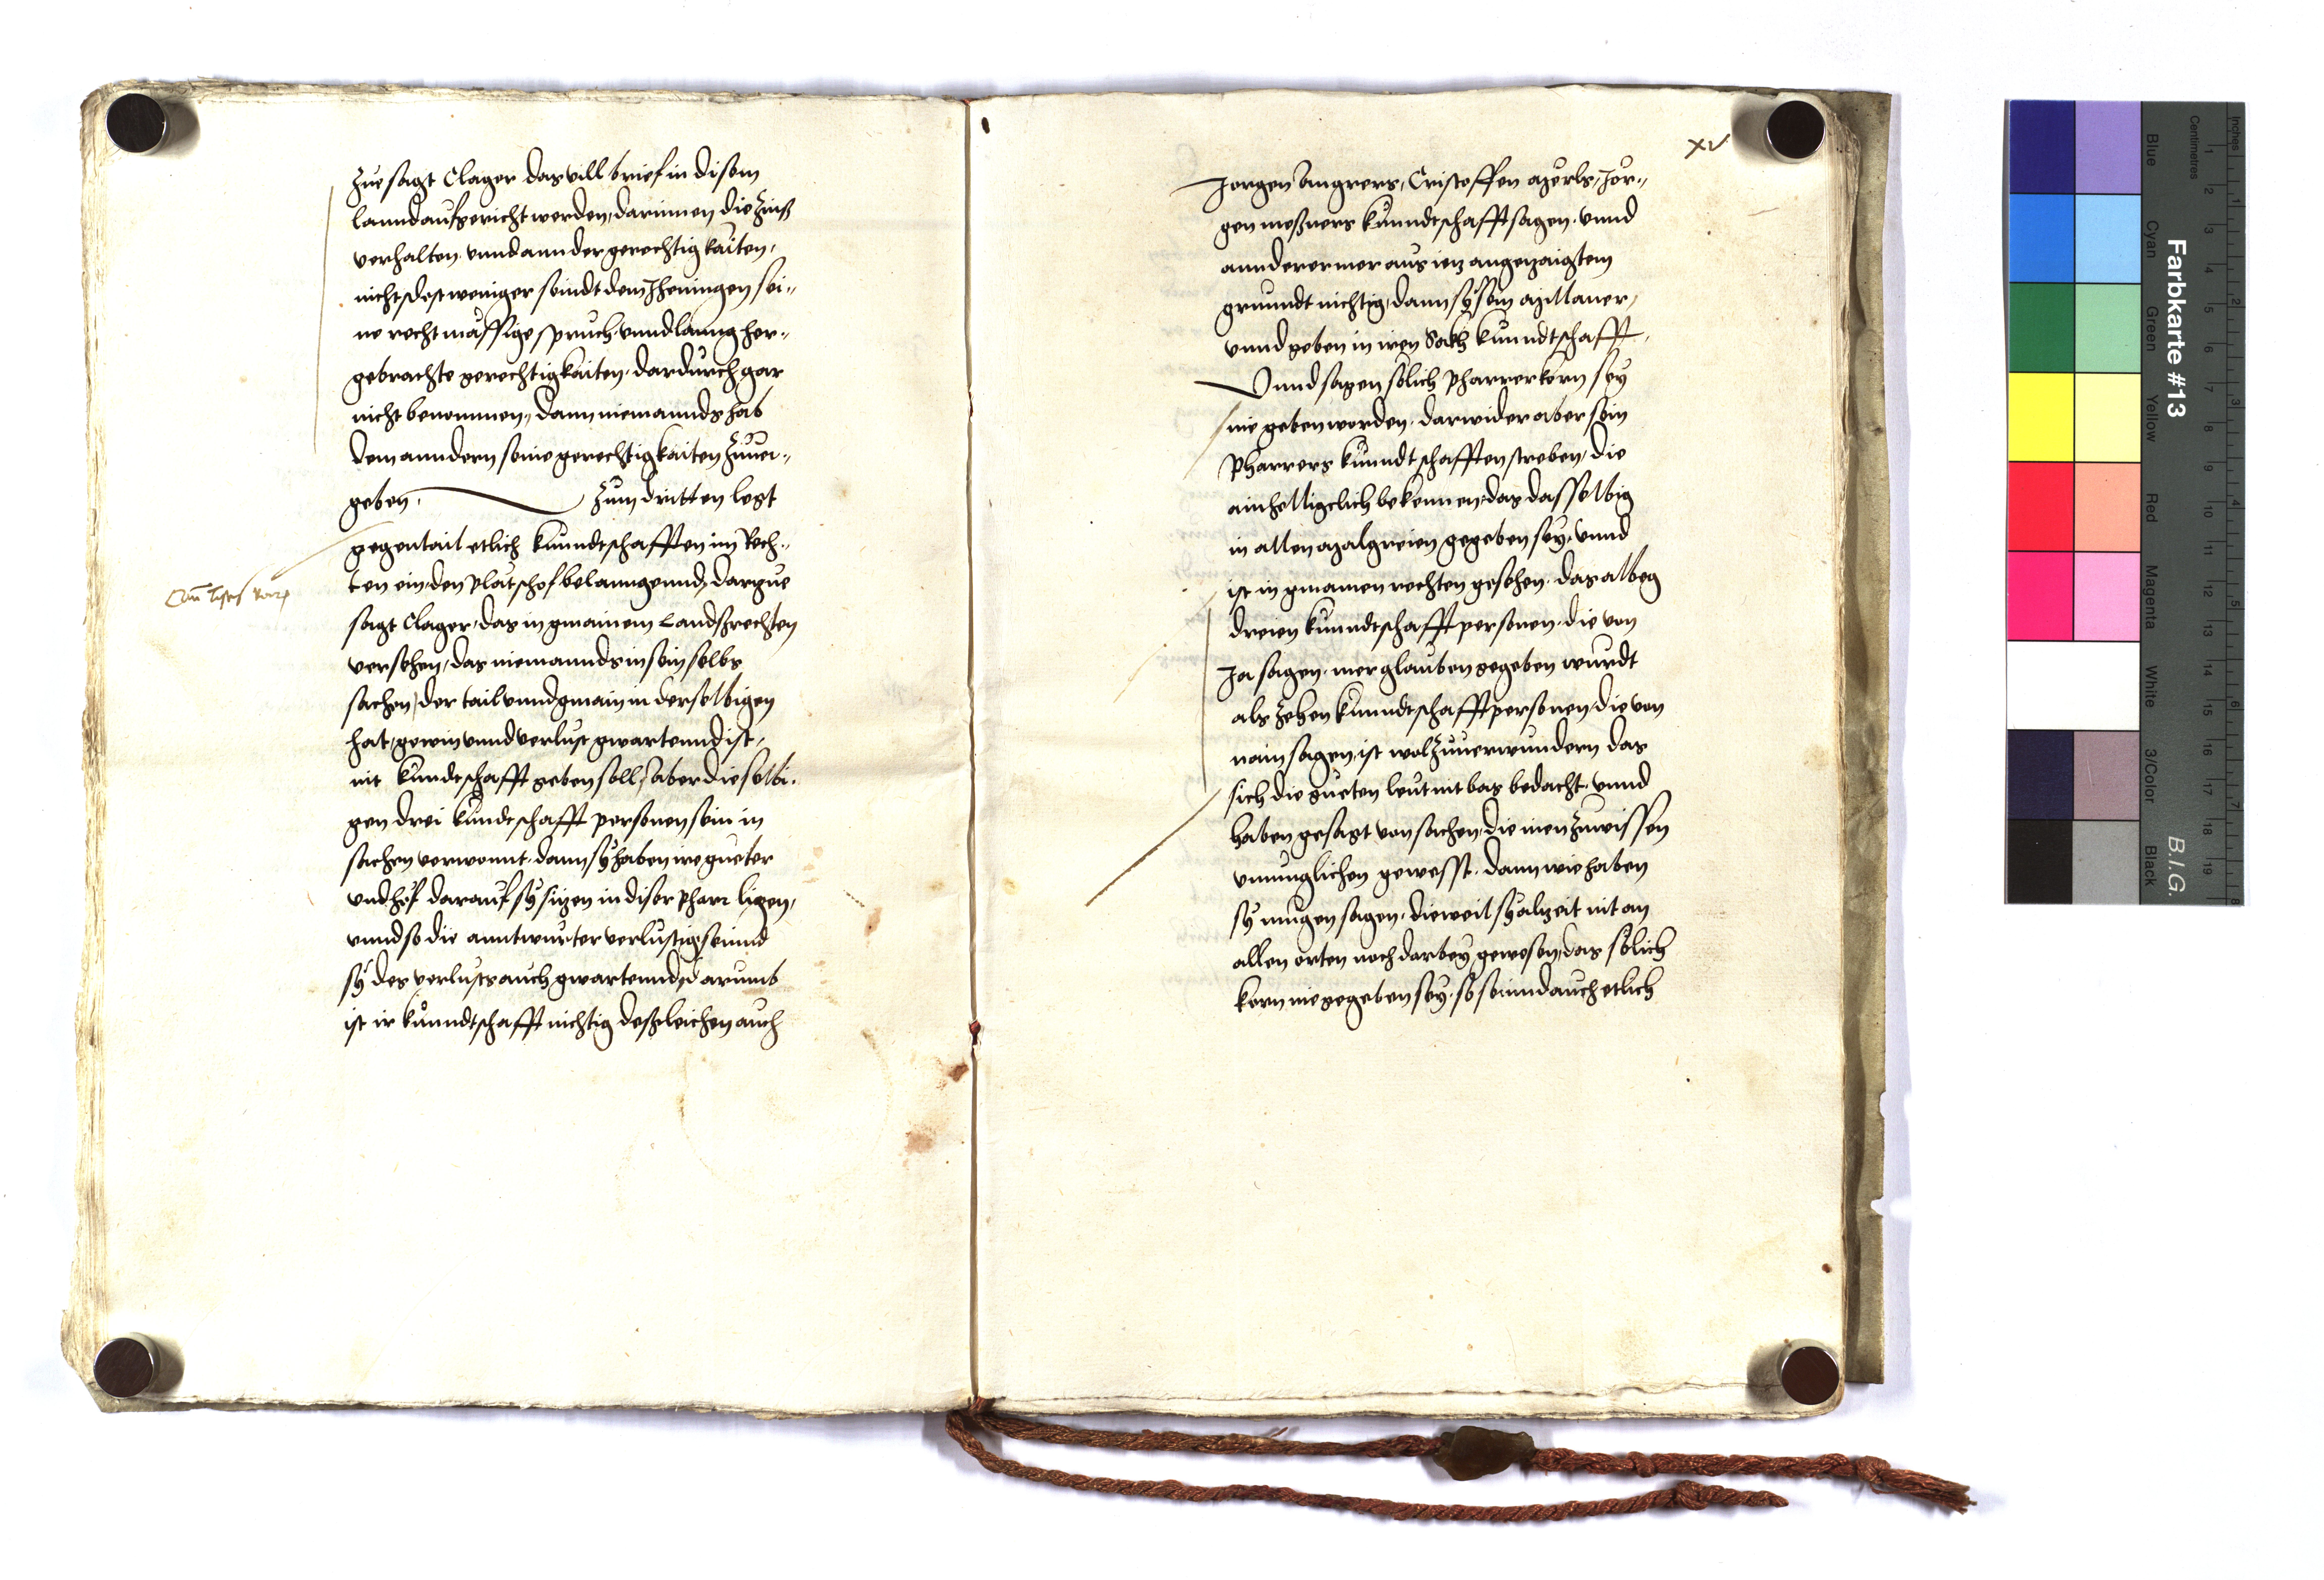 zue sagt Clager das vill brief in disem
lannd aufgericht werden, darinnen die Zinß
verhalten. vnnd annder gerechtigkaiten,
nichtsdestweniger seindt dem Jheningen sei-,
ne rechtmässige spruch. vnnd lanng her-,
gebrachte gerechtigkaiten. dardurch gar
nicht benommen, dann niemannds hab
dem anndern seine gerechtigkaiten Zuuer-,
geben. Zum dritten legt
gegentail etlich kunndtschafften im Rech-,
ten ein, den Platschof belanngennd, dartzue
sagt Clager, das in gmainem Landsrechten
versehen, das niemannds in sein selbs
sachen, der tail vnnd gmain in derselbigen
hat, gewin vnnd verlust gwartennd ist,
nit kundtschafft geben soll, aber dieselbi-
gen drei kundtschafft personen sein in
sachen verwonnt. dann sy haben ire gueter
vnd höf darauf sy sitzen in diser Pharr ligen,
vnnd so die anntwurter verlustig seinnd
sy des verlusts auch gwartennd, darumb
ist ir kunndtschafft nichtig deßgleichen auch
xv
Jorgen Cristoffen Jör-,
gen meßners kunndtschafft sagen. vnnd
annderer mer aus ietz angetzaigtem
grunndt nichtig, dann sy sein
vnnd geben in iren Sackh kunndtschafft.
Vnnd sagen sölich Pharrerkorn sey
nie geben worden. darwider aber sein
Pharrers kunndtschafften streben, die
ainhelligclich bekennen, das dasselbig
in allen gegeben sey. vnnd
ist in gmainen rechten gesehen. das albeg
dreien kunndtschafft personen. die von
Ja sagen. mer glauben gegeben wurdt
als zehen kunndtschafft personen, die von
nain sagen, ist wol Zuuerwundern das
sich die gueten leut nit bas bedacht. vnnd
haben gesagt von sachen, die inen Zuwissen
vnmuglichen gewesst. dann wie haben
sy mugen sagen. dieweil sy altzeit nit an
allen orten noch darbey gewesen, das sölich
korn nie gegeben sey. so seinnd auch etlich